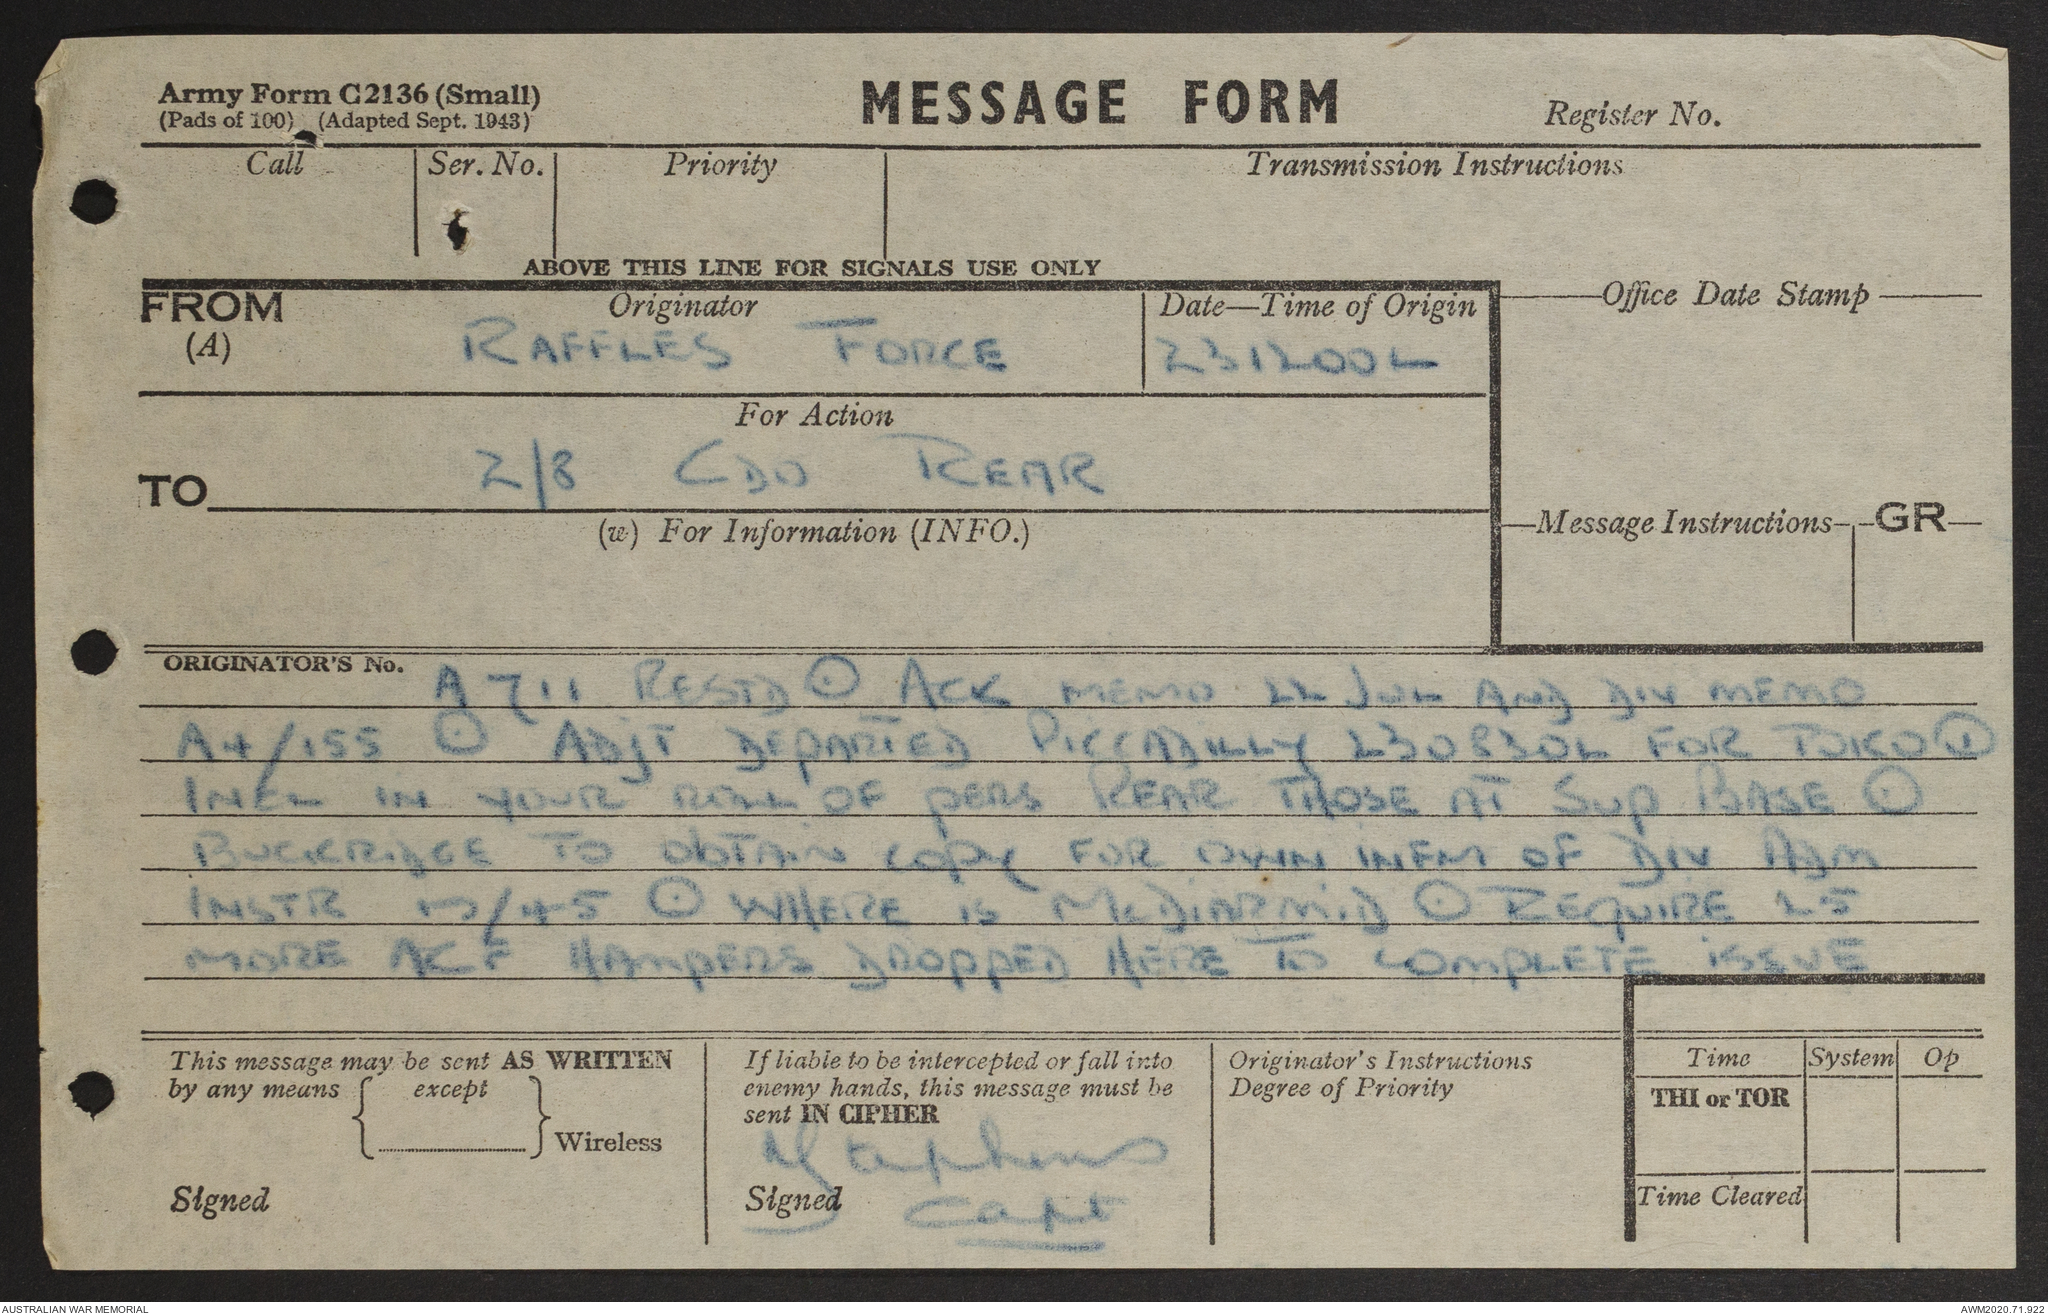 Army Form C2136 (Small)
(Pads of 100) (Adapted Sept. 1943)
MESSAGE FORM
Register No.
Call
Ser. No.
Priority
Transmission Instructions
ABOVE THIS LINE FOR SIGNALS USE ONLY
FROM
(A)
Originator
RAFFLES FORCE
Date—Time of Origin
231200L
Office Date Stamp
For Action
TO
2/8 CDO REAR
(w) For Information (INFO.)
Message Instructions
GR
ORIGINATOR'S No.
A711 RESTD ⊙ ACK MEMO 22 JUL AND DIV MEMO
A4/155 ⊙ ADJT DEPARTED PICCADILLY 230830L FOR TOKO ⊙
INCL IN YOUR ROLL OF PERS REAR THOSE AT SUP BASE ⊙
BUCKRIDGE TO OBTAIN COPY FOR OWN INFM OF DIV ADM
INSTR /45 ⊙ WHERE IS McDIARMID ⊙ REQUIRE 25
MORE ACF HAMPERS DROPPED HERE TO COMPLETE ISSUE
This message may be sent AS WRITTEN
by any means { except } Wireless
Signed
If liable to be intercepted or fall into
enemy hands, this message must be
sent IN CIPHER
Stephens
Signed
Capt
Originator's Instructions
Degree of Priority
Time
System
Op
THI or TOR
Time Cleared
AUSTRALIAN WAR MEMORIAL
AWM2020.71.922